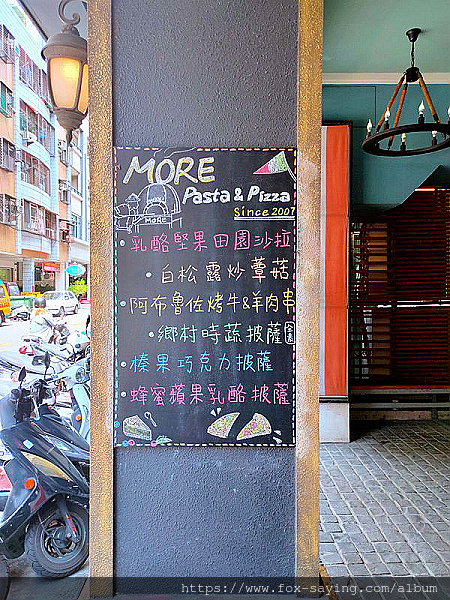 MORE
Pasta & Pizza
Since 2007
MORE
·乳酪堅果田園沙拉
·白松露炒蕈菇
·阿布魯佐烤牛&羊肉串
·鄉村時蔬披薩 全素
·榛果巧克力披薩
·蜂蜜蘋果乳酪披薩
https://www.fox-saying.com/album